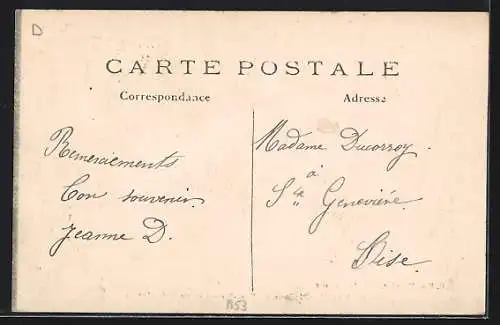 D
CARTE POSTALE
Correspondance
Adresse
Remerciements
Bon souvenir
Jeanne D.
Madame Ducorroy.
à
Ste Geneviève
Oise.